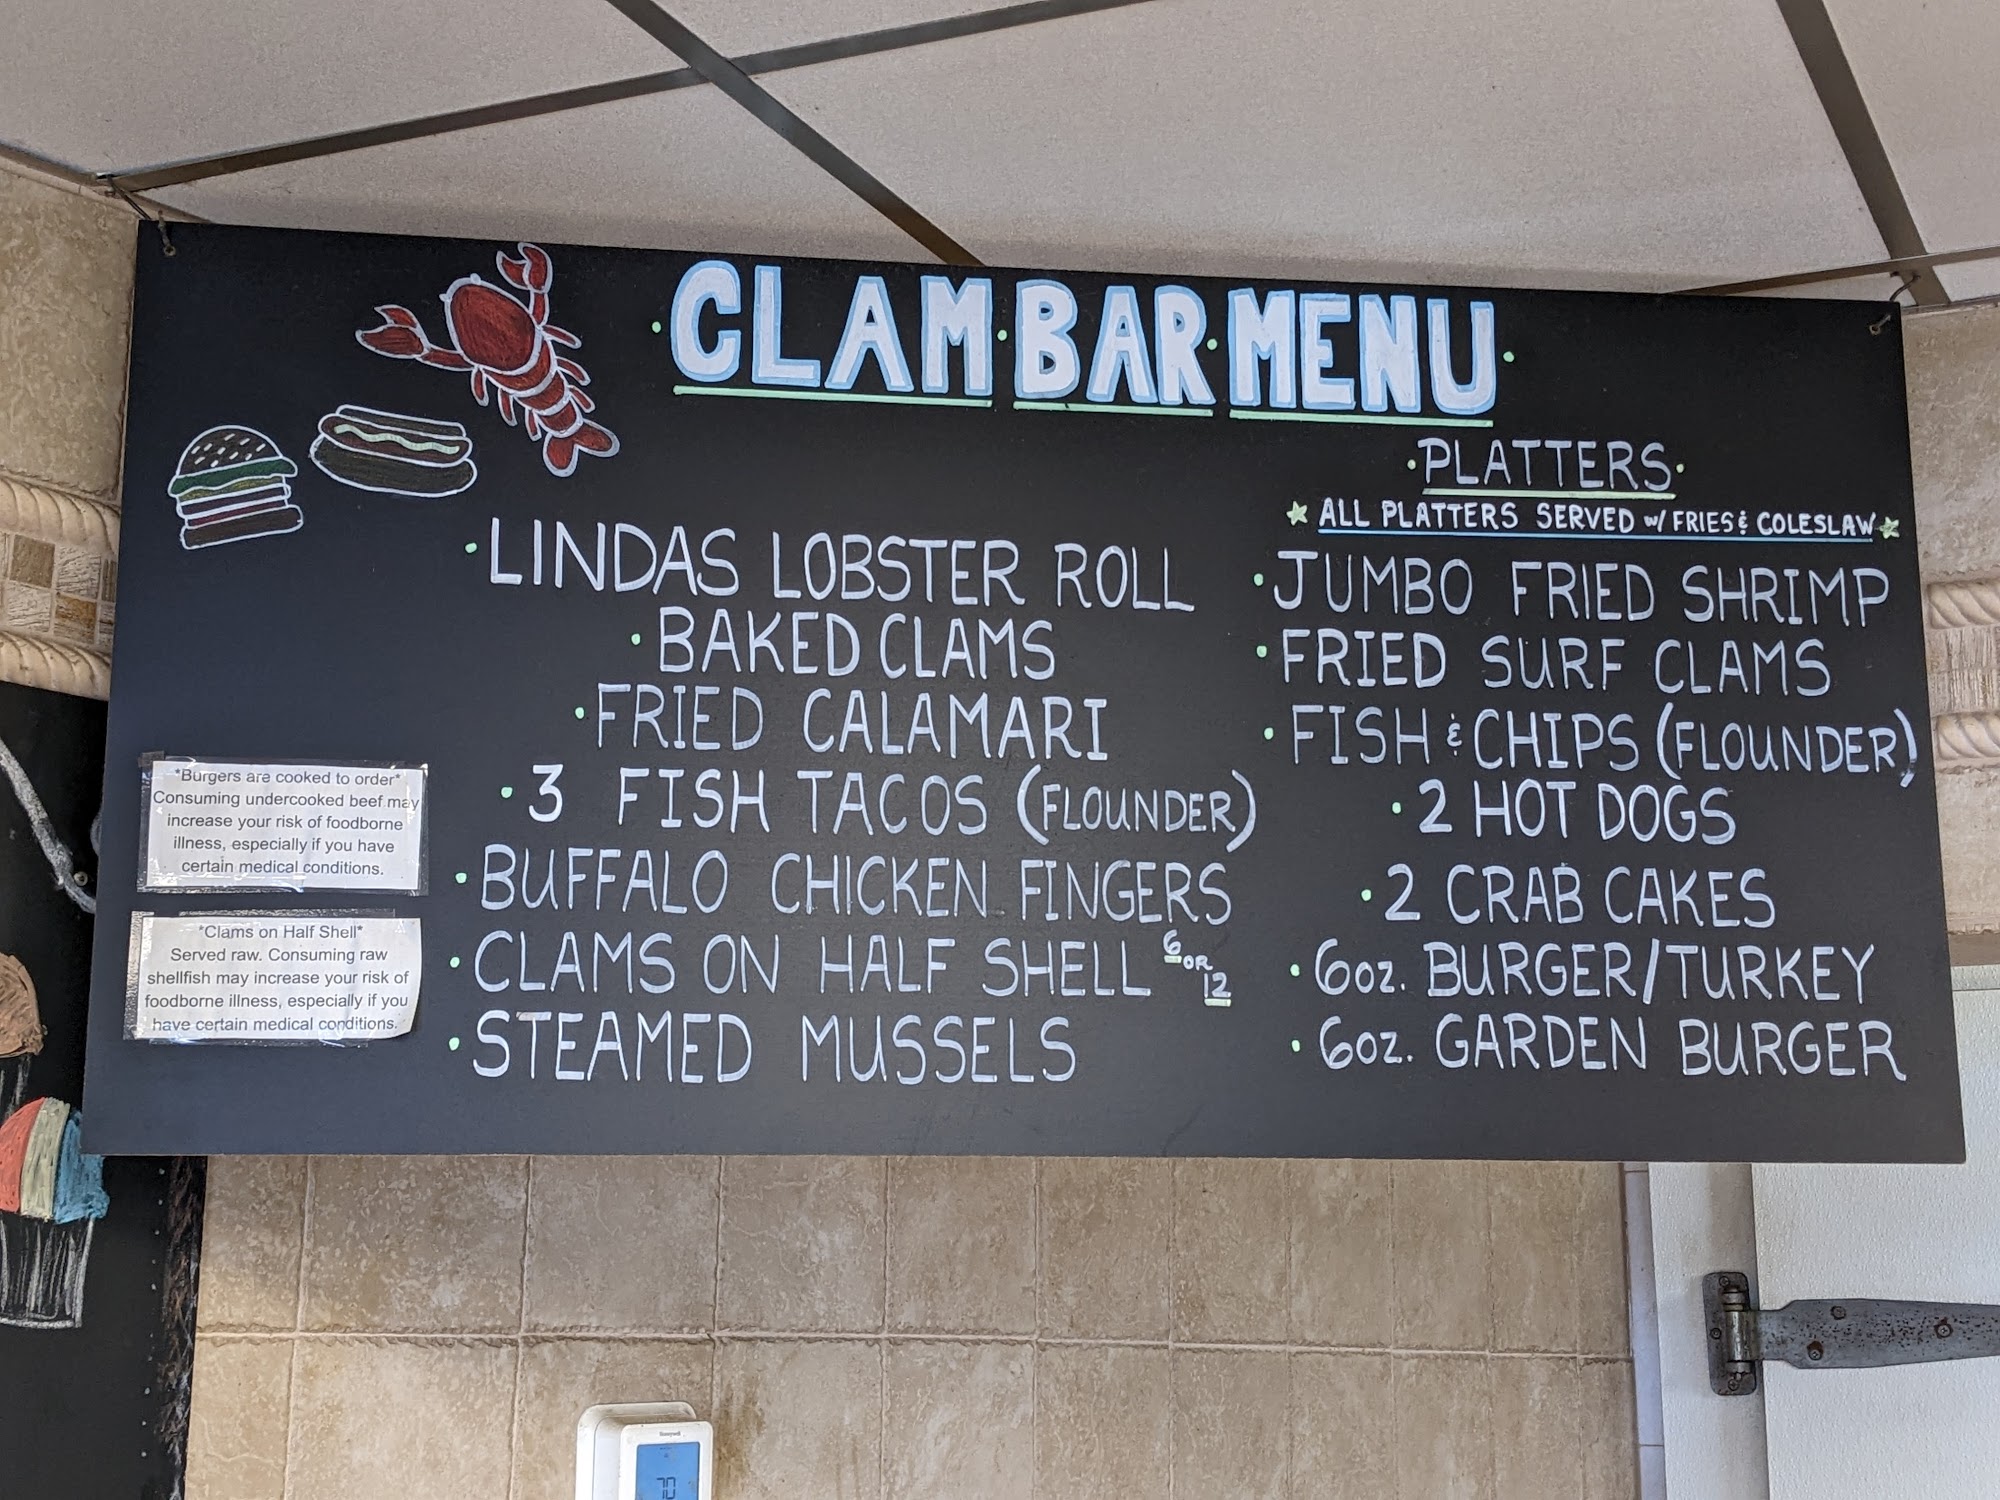 CLAM·BAR·MENU
LINDAS LOBSTER ROLL
BAKED CLAMS
FRIED CALAMARI
3 FISH TACOS (FLOUNDER)
BUFFALO CHICKEN FINGERS
CLAMS ON HALF SHELL 6 OR 12
STEAMED MUSSELS
PLATTERS
ALL PLATTERS SERVED w/ FRIES & COLESLAW
JUMBO FRIED SHRIMP
FRIED SURF CLAMS
FISH & CHIPS (FLOUNDER)
2 HOT DOGS
2 CRAB CAKES
6oz. BURGER/TURKEY
6oz. GARDEN BURGER
*Burgers are cooked to order*
Consuming undercooked beef may
increase your risk of foodborne
illness, especially if you have
certain medical conditions.
*Clams on Half Shell*
Served raw. Consuming raw
shellfish may increase your risk of
foodborne illness, especially if you
have certain medical conditions.
Honeywell
70